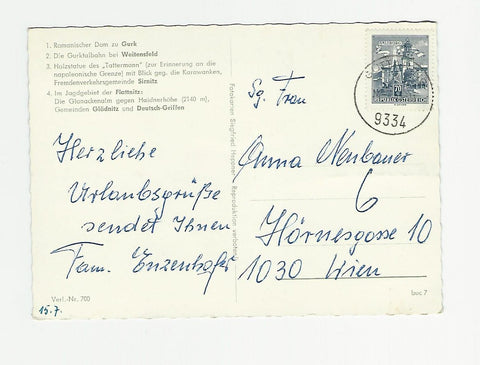 1. Romanischer Dom zu Gurk
2. Die Gurktalbahn bei Weitensfeld
3. Holzstatue des „Tattermann" (zur Erinnerung an die
napoleonische Grenze) mit Blick geg. die Karawanken,
Fremdenverkehrsgemeinde Sirnitz
4. Im Jagdgebiet der Flattnitz:
Die Glanackenalm gegen Haidnerhöhe (2140 m),
Gemeinden Glödnitz und Deutsch-Griffen
Herzliche
Urlaubsgrüße
sendet Ihnen
Fam. Enzenhofer
Verl.-Nr. 700
15.7.
Fotokarten Siegfried
Reproduktion verboten
9334
REPUBLIK ÖSTERREICH
Sg. Frau
Anna Neubauer
6
Hörnesgasse 10
1030 Wien
buc 7